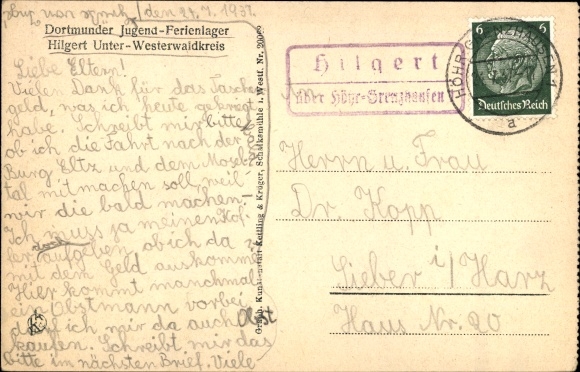 den 24. 7. 1937
Dortmunder Jugend-Ferienlager
Hilgert Unter-Westerwaldkreis
Liebe Eltern!
Vielen Dank für das Taschen
geld, was ich heute gekriegt
habe. Schreibt mir bitte
ob ich die Fahrt nach der
Burg Eltz und dem Mosel-
tal mitmachen soll, weil
wir die bald machen.
Ich muss ja meinen Kof-
fer aufgeben, ob ich da
doch
mit dem Geld auskomme.
Hier kommt manchmal
ein Obstmann vorbei
darf ich mir da auch Obst
kaufen. Schreibt mir das
bitte im nächsten Brief. Viele
Graph. Kunstanstalt Kettling & Krüger, Schalksmühle i. Westf. Nr.
Hilgert
über Höhr-Grenzhausen
HÖHR-GRENZHAUSEN 1
a
6 6
Deutsches Reich
Herrn u. Frau
Dr. Kopp
Sieber i/Harz
Haus Nr. 20